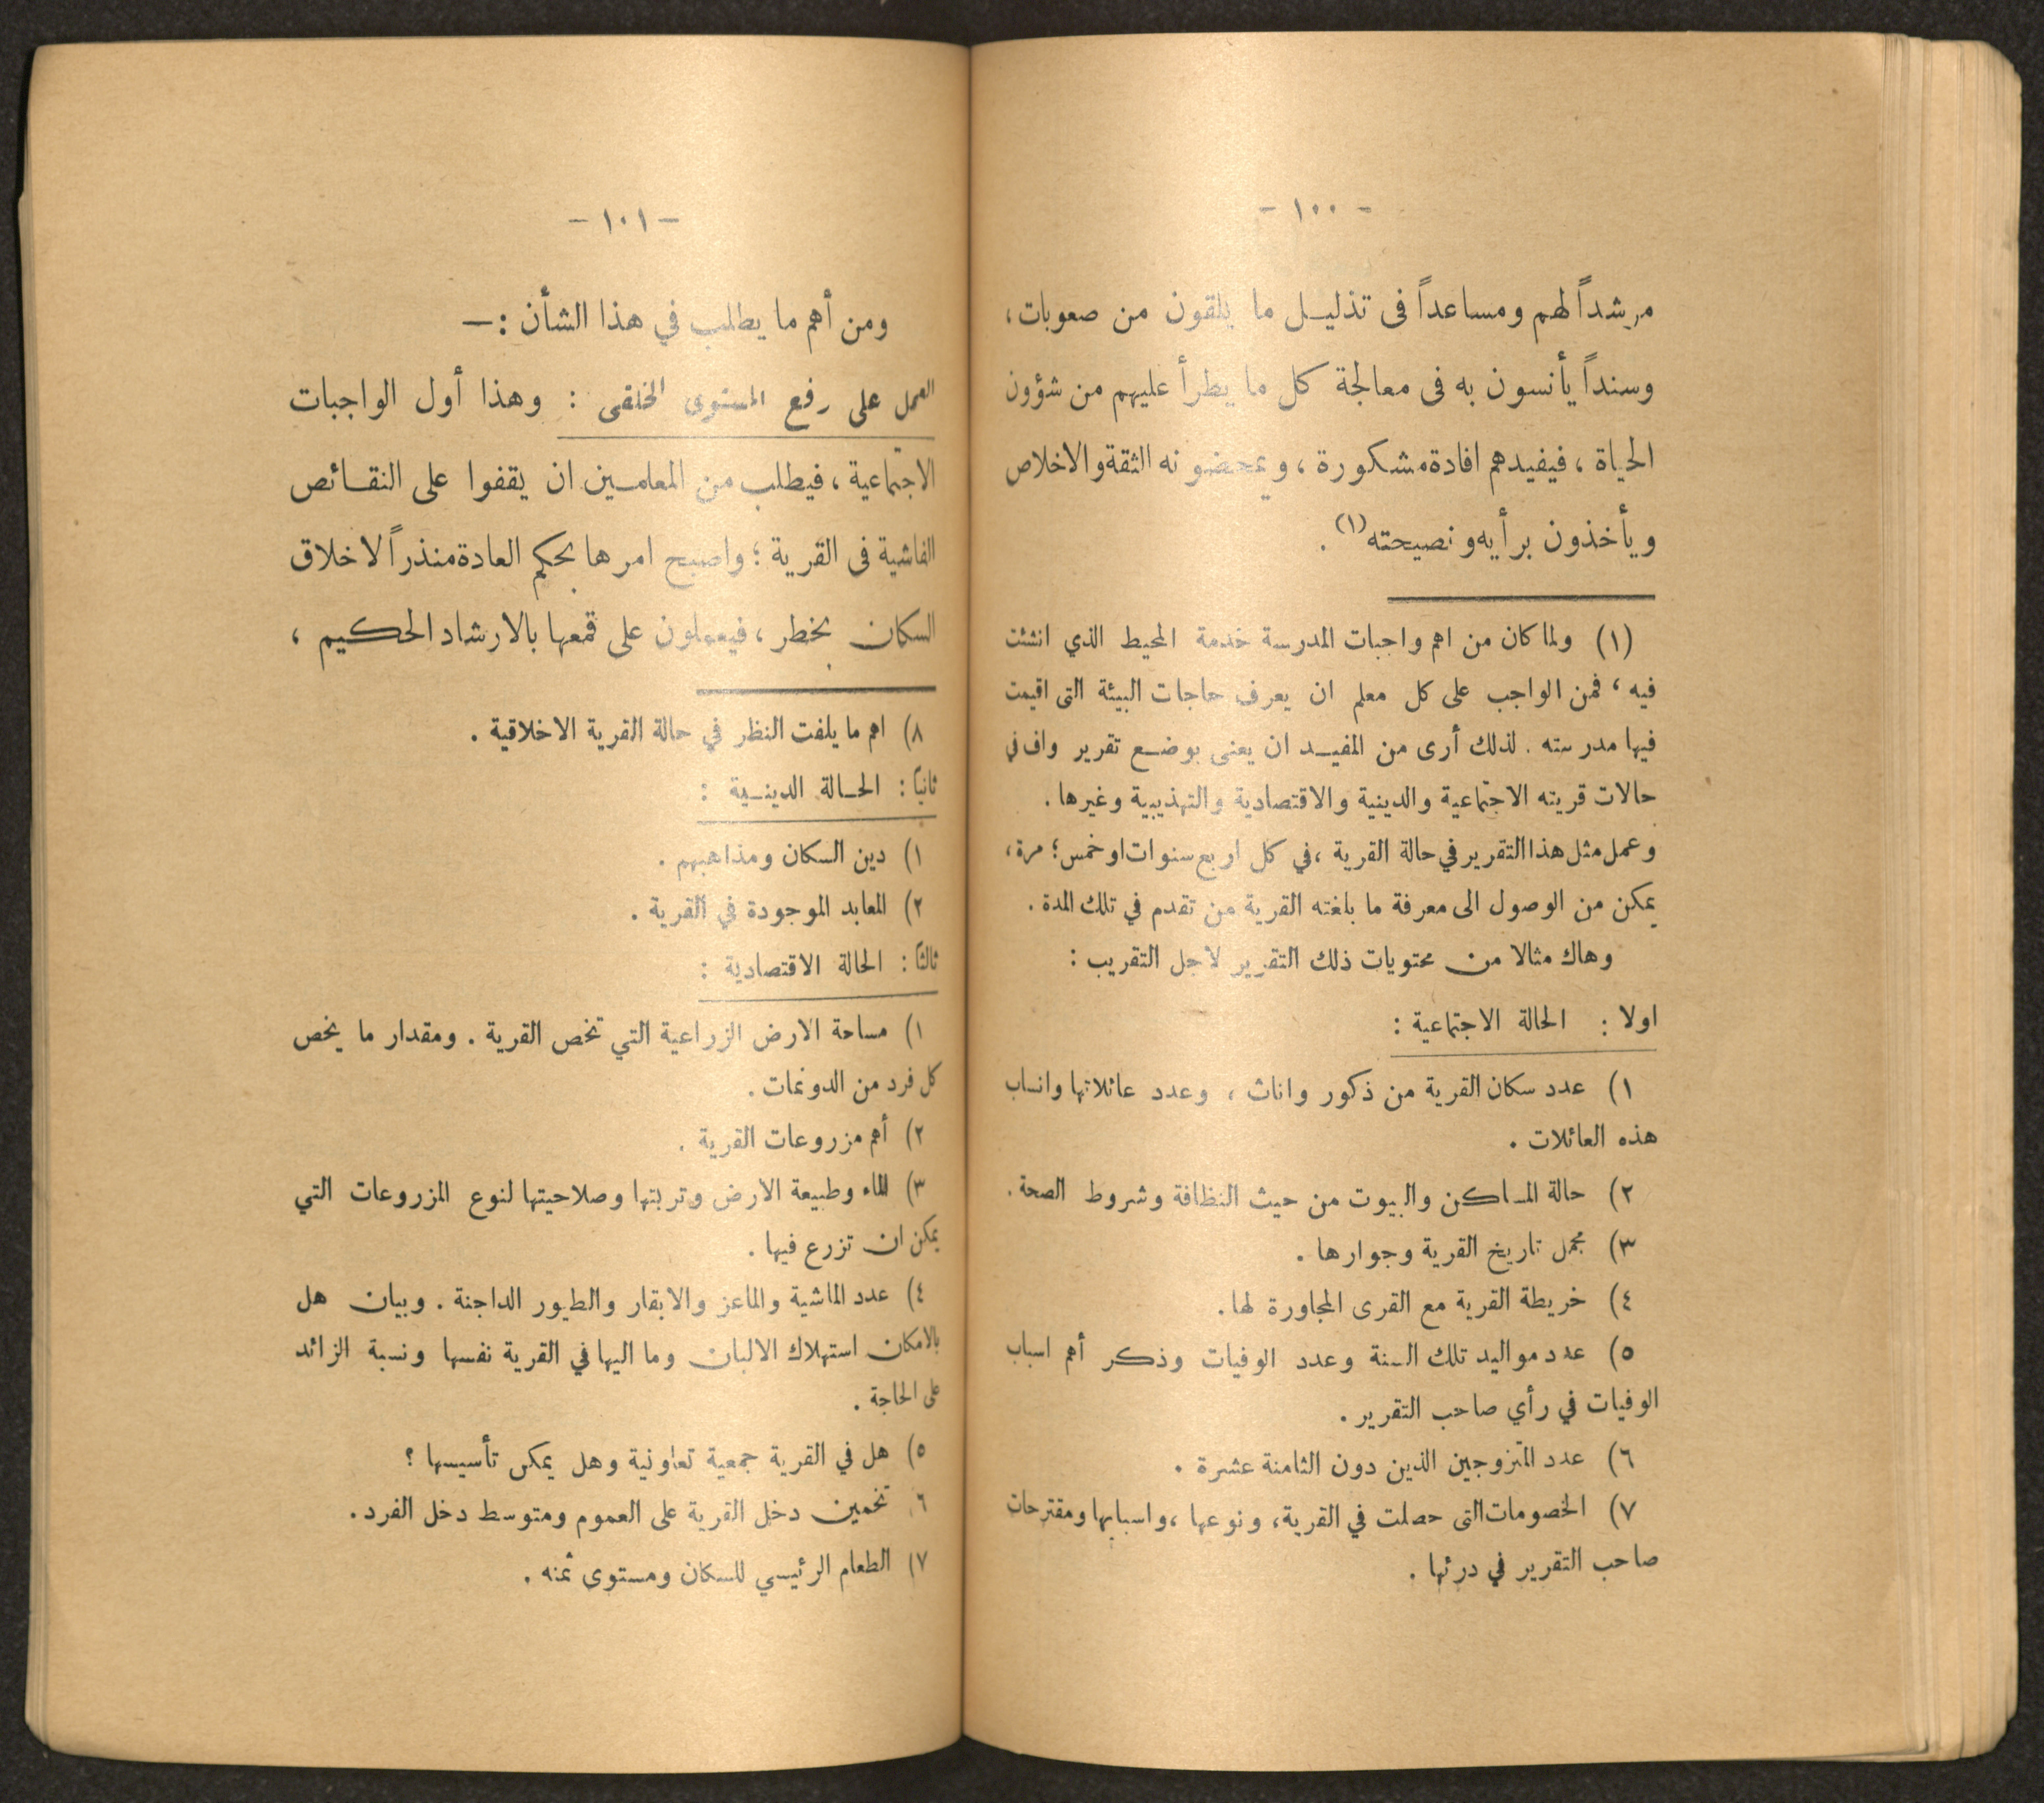 - ١٠٠ -
مرشداً لهم ومساعداً فى تذليل ما يلقون من صعوبات ،
وسنداً يأنسون به فى معالجة كل ما يطرأ عليهم من شؤون
الحياة ، فيفيدهم افادة مشكورة ، ويمحضونه الثقة والاخلاص
ويأخذون برأيه ونصيحته (١) .
(١) ولما كان من اهم واجبات المدرسة خدمة المحيط الذي انشئت
فيه ، فمن الواجب على كل معلم ان يعرف حاجات البيئة التى اقيمت
فيها مدرسته . لذلك أرى من المفيد ان يعنى بوضع تقرير واف في
حالات قريته الاجتماعية والدينية والاقتصادية والتهذيبية وغيرها .
وعمل مثل هذا التقرير في حالة القرية ، في كل اربع سنوات او خمس ؛ مرة ،
يمكن من الوصول الى معرفة ما بلغته القرية من تقدم في تلك المدة .
وهاك مثالا من محتويات ذلك التقرير لاجل التقريب :
اولا : الحالة الاجتماعية :
١) عدد سكان القرية من ذكور واناث ، وعدد عائلاتها وانساب
هذه العائلات .
٢) حالة المساكن والبيوت من حيث النظافة وشروط الصحة .
٣) مجمل تاريخ القرية وجوارها .
٤) خريطة القرية مع القرى المجاورة لها .
٥) عدد مواليد تلك السنة وعدد الوفيات وذكر أهم اسباب
الوفيات في رأي صاحب التقرير .
٦) عدد المتزوجين الذين دون الثامنة عشرة .
٧) الخصومات التى حصلت في القرية ، ونوعها ، واسبابها ومقترحات
صاحب التقرير في درئها .
- ١٠١ -
ومن أهم ما يطلب في هذا الشأن :—
العمل على رفع المستوى الخلقى : وهذا أول الواجبات
الاجتماعية ، فيطلب من المعلمين ان يقفوا على النقائص
الفاشية فى القرية ؛ واصبح امرها بحكم العادة منذراً لاخلاق
السكان بخطر ، فيعملون على قمعها بالارشاد الحكيم ،
٨) اهم ما يلفت النظر في حالة القرية الاخلاقية .
ثانياً : الحالة الدينية :
١) دين السكان ومذاهبهم .
٢) المعابد الموجودة في القرية .
ثالثاً : الحالة الاقتصادية :
١) مساحة الارض الزراعية التي تخص القرية . ومقدار ما يخص
كل فرد من الدونمات .
٢) أهم مزروعات القرية .
٣) الماء وطبيعة الارض وتربتها وصلاحيتها لنوع المزروعات التي
يمكن ان تزرع فيها .
٤) عدد الماشية والماعز والابقار والطيور الداجنة . وبيان هل
بالامكان استهلاك الالبان وما اليها في القرية نفسها ونسبة الزائد
على الحاجة .
٥) هل في القرية جمعية تعاونية وهل يمكن تأسيسها ؟
٦) تخمين دخل القرية على العموم ومتوسط دخل الفرد .
٧) الطعام الرئيسي للسكان ومستوى ثمنه .